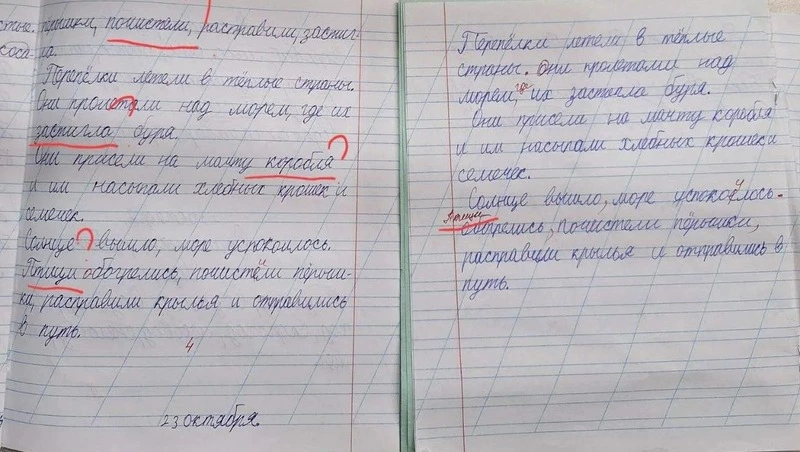 стые. пёрышки, почистели, расправили, застиг-
коса ла.
Перепёлки летели в тёплые страны.
Они пролетали над морем, где их
застигла буря.
Они присели на мачту коробля?
и им насыпали хлебных крошек и
семечек.
Солнце? вышло, море успокоилось.
Птици обогрелись, почистели пёрыш-
ки, расправили крылья и отправились
в путь.
4
23 октября.
Перепёлки летели в тёплые
страны. Они пролетали над
морем, где их застала буря.
Они присели на мачту коробля
и им насыпали хлебных крошек и
семечек.
Солнце вышло, море успокоилось.
Птицы
обогрелись, почистели пёрышки,
расправили крылья и отправились в
путь.